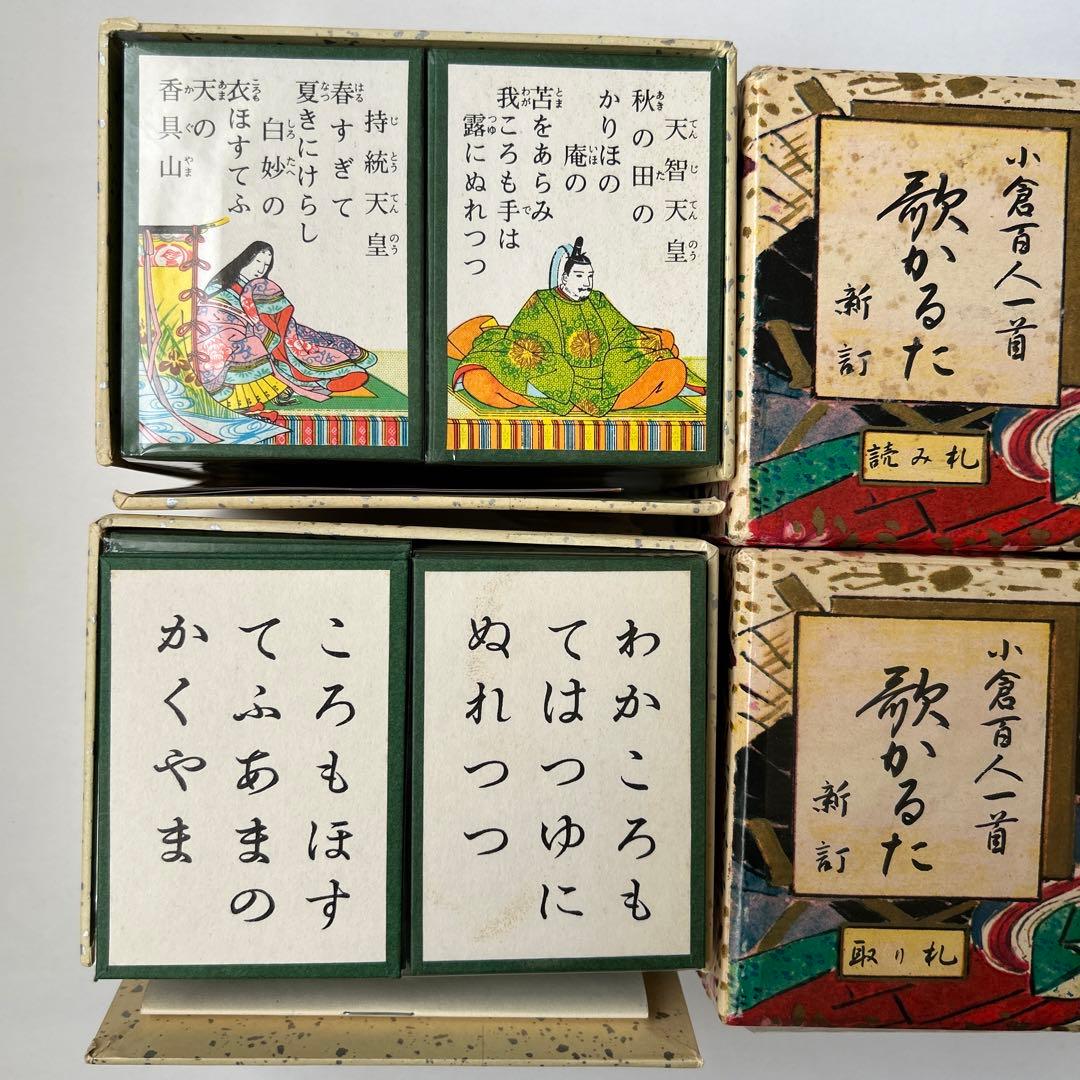 天智天皇
秋の田の
かりほの
庵の
苫をあらみ
我ころも手は
露にぬれつつ
持統天皇
春すぎて
夏きにけらし
白妙の
衣ほすてふ
天の
香具山
小倉百人一首
歌かるた
新訂
読み札
わかころも
てはつゆに
ぬれつつ
ころもほす
てふあまの
かくやま
小倉百人一首
歌かるた
新訂
取り札